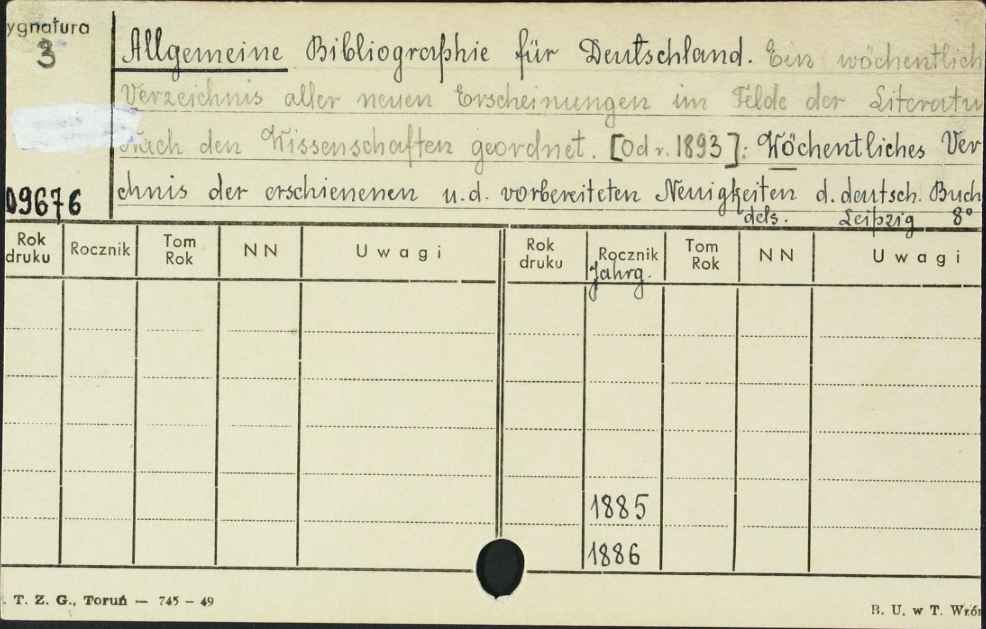 ygnatura
3
Allgemeine Bibliographie für Deutschland. Ein wöchentlich
Verzeichnis aller neuen Erscheinungen im Felde der Literatu
Nach den Wissenschaften geordnet. [Od r. 1893]: Wöchentliches Ver
chnis der erschienenen u.d. vorbereiteten Neuigkeiten d. deutsch. Buch
09676
dels. Leipzig 8°
Rok druku Rocznik Tom Rok NN Uwagi Rok druku Rocznik Tom Rok NN Uwagi
Jahrg.
1885
1886
. T. Z. G., Toruń — 745 – 49
B. U. w T. Wzór